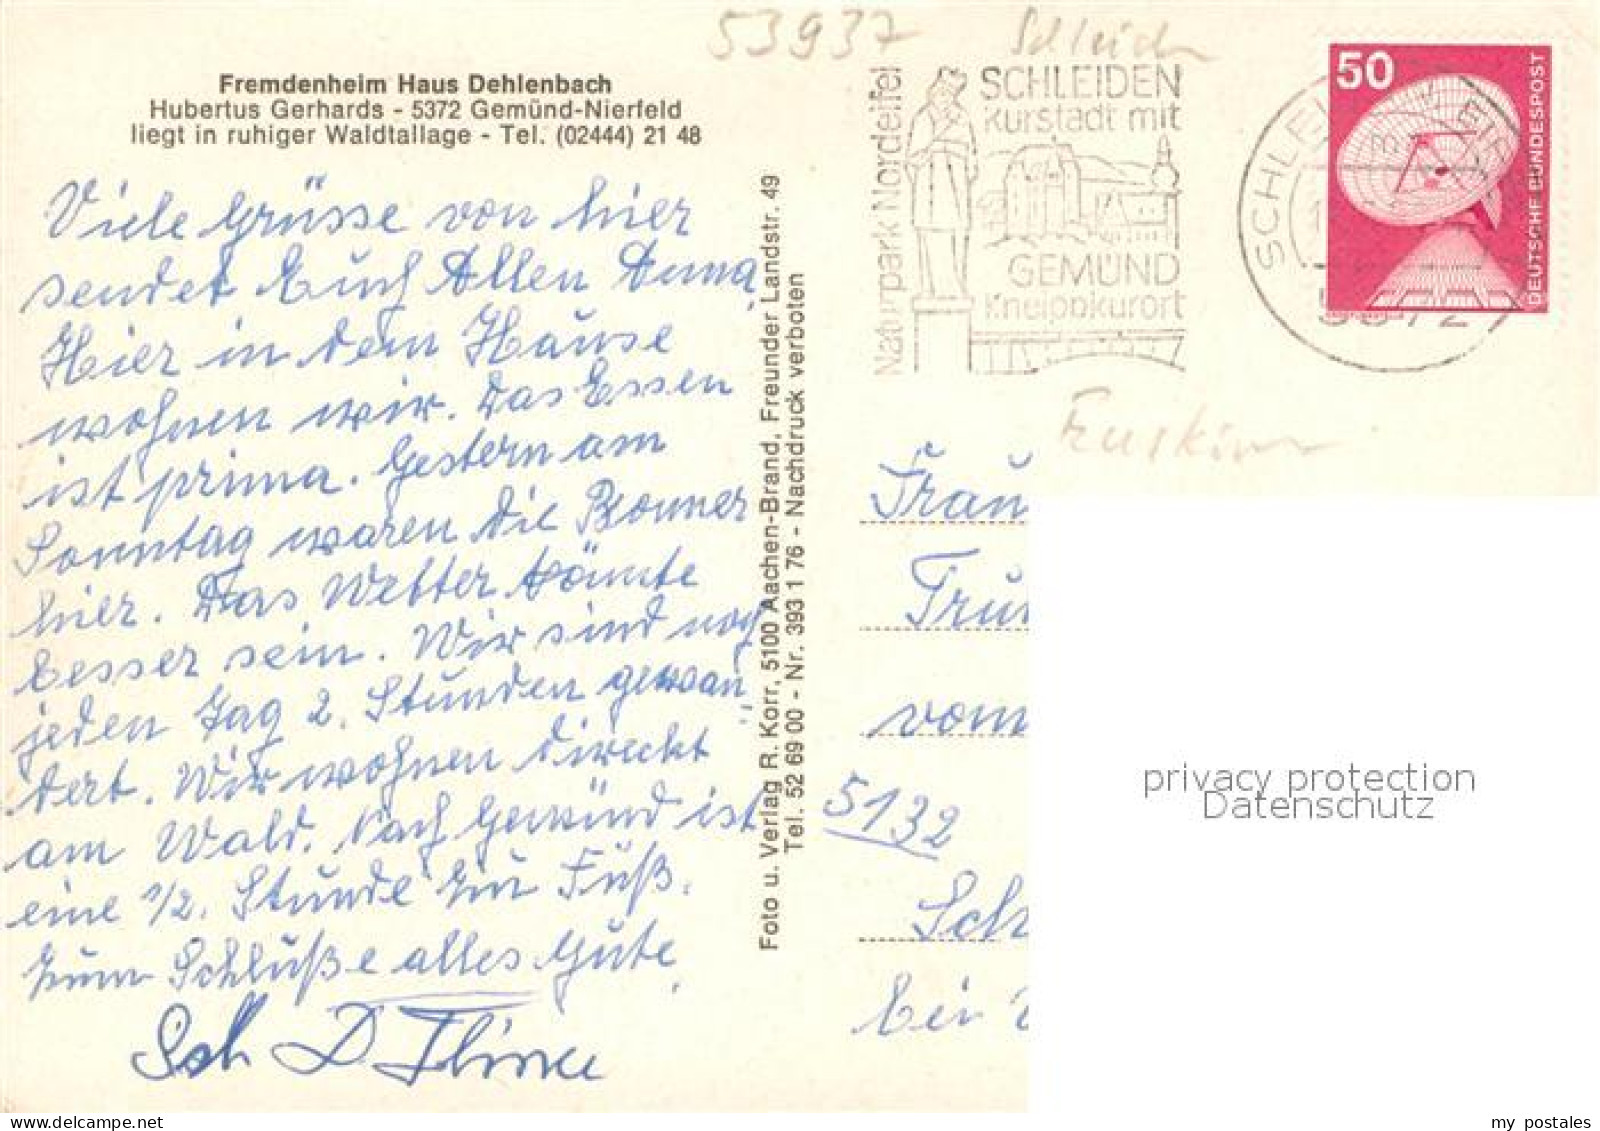 53937 Schleiden
Fremdenheim Haus Dehlenbach
Hubertus Gerhards - 5372 Gemünd-Nierfeld
liegt in ruhiger Waldtallage - Tel. (02444) 21 48
Viele Grüsse von hier
sendet Euch Allen Anna,
Hier in dem Hause
wohnen wir. Das Essen
ist prima. Gestern am
Sonntag waren die Bonner
hier. Das Wetter könnte
besser sein. Wir sind noch
jeden Tag 2. Stunden gewan
dert. Wir wohnen direckt
am Wald. Nach Gemünd ist
eine 1/2. Stunde zu Fuß.
Zum Schluße alles Gute,
Foto u. Verlag R. Korr, 5100 Aachen-Brand, Freunder Landstr. 49
Tel. 52 69 00 - Nr. 393 1 76 - Nachdruck verboten
Naturpark Nordeifel
SCHLEIDEN
Kurstadt mit
GEMÜND
Kneippkurort
SCHLEIDEN
50
DEUTSCHE BUNDESPOST
Frau
Tru
vom
5132
Sch
bei
privacy protection
Datenschutz
my postales